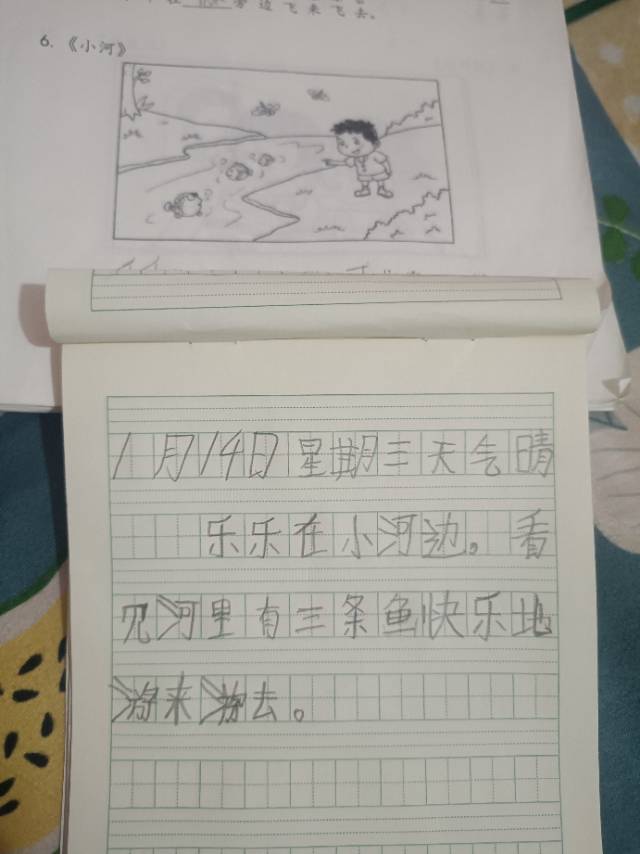 旁边飞来飞去。
6.《小河》
1月14日星期三天气晴
乐乐在小河边。看
见河里有三条鱼快乐地
游来游去。